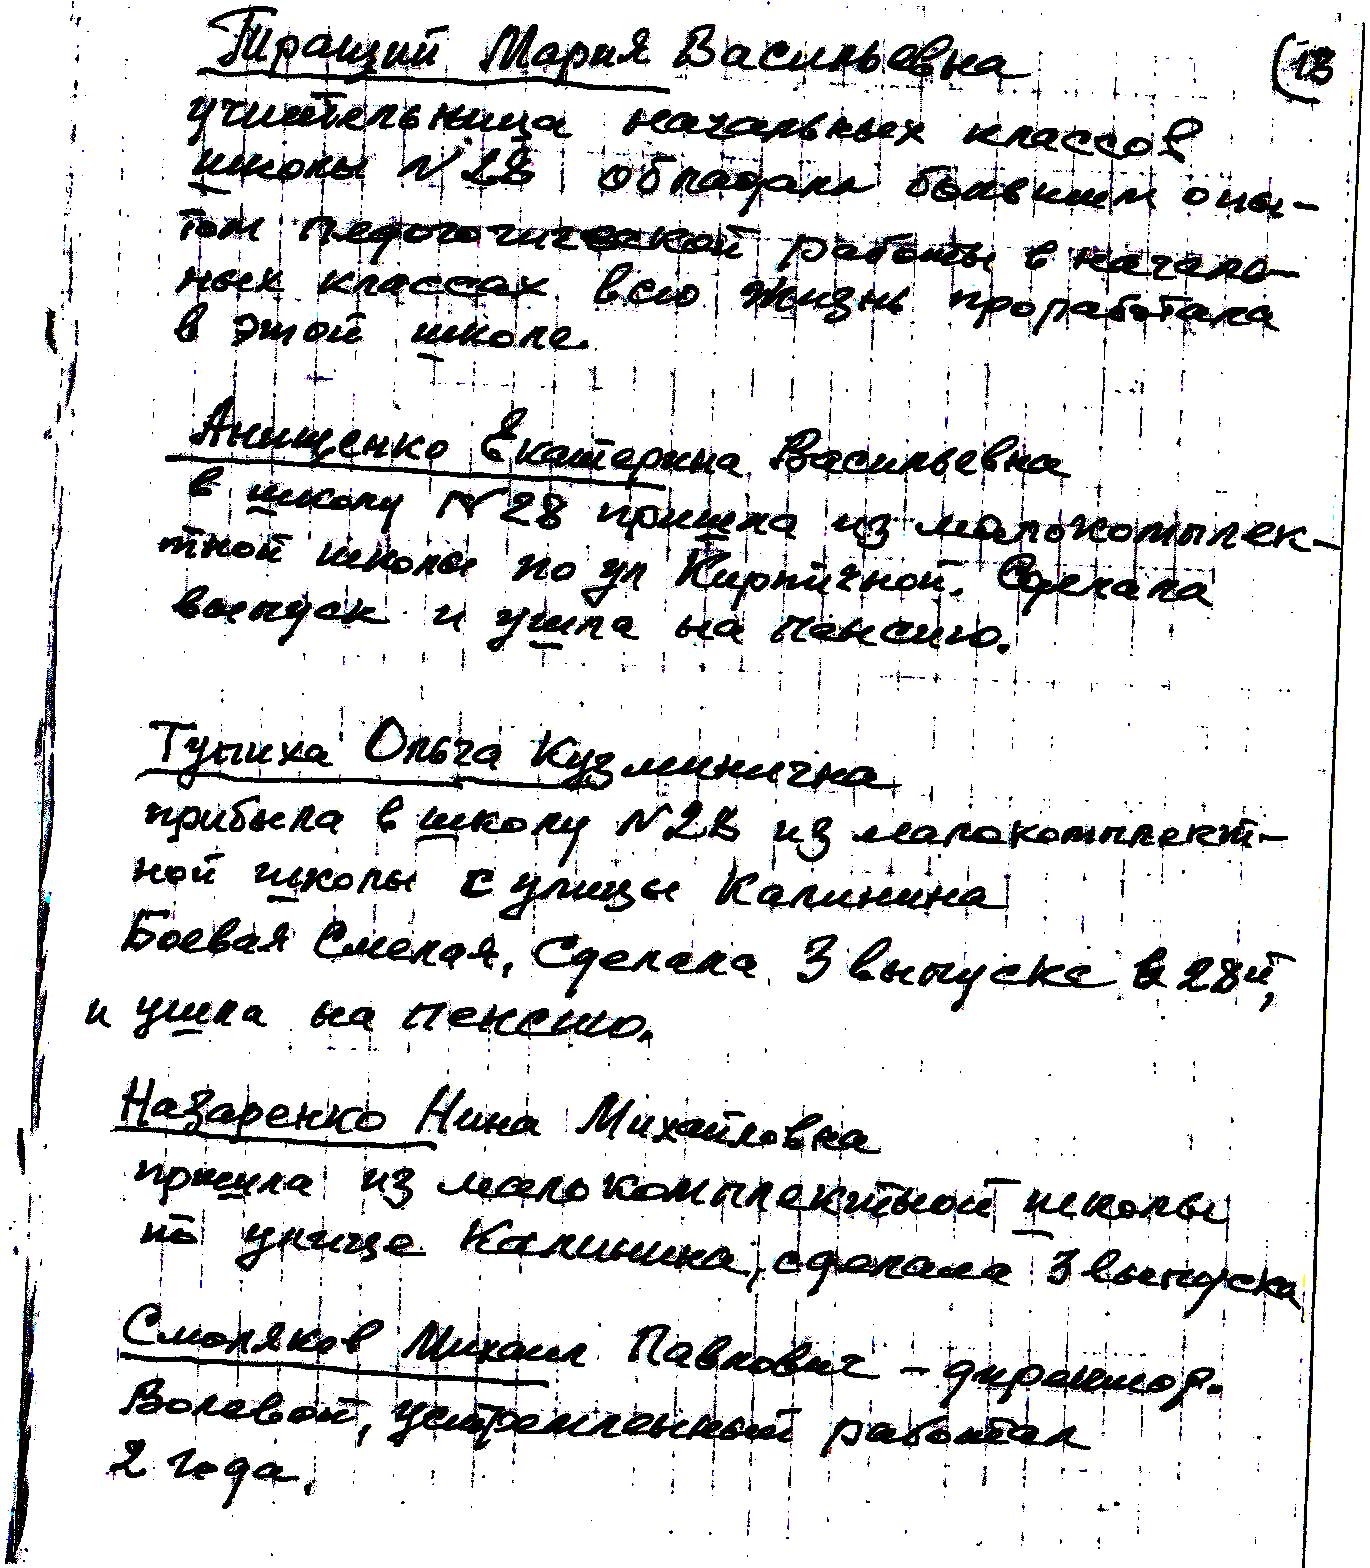 Тиращий Мария Васильевна
13
учительница начальных классов
школы №28 обладала большим опы-
том педогогической работы в началь-
ных классах всю жизнь проработала
в этой школе.
Анищенко Екатерина Васильевна
в школу №28 пришла из малокомплек-
тной школы по ул Кирпичной. Сделала
выпуск и ушла на пенсию.
Тупиха Ольга Кузминична
прибыла в школу №28 из малокомплект-
ной школы с улицы Калинина
Боевая Смелая, Сделала 3 выпуска в 28й,
и ушла на пенсию.
Назаренко Нина Михайловна
пришла из малокомплектной школы
по улице Калинина, сделала 3 выпуска
Смоляков Михаил Павлович - директор.
Волевой, устремленный работал
2 года.